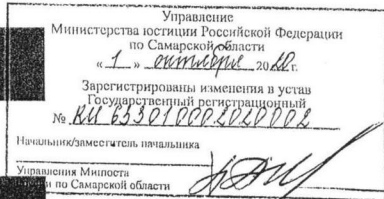 Управление
Министерства юстиции Российской Федерации
по Самарской области
«1» октября 2020г.
Зарегистрированы изменения в устав
Государственный регистрационный
№ RU 633010002020002
Начальник/заместитель начальника
Управления Минюста
по Самарской области